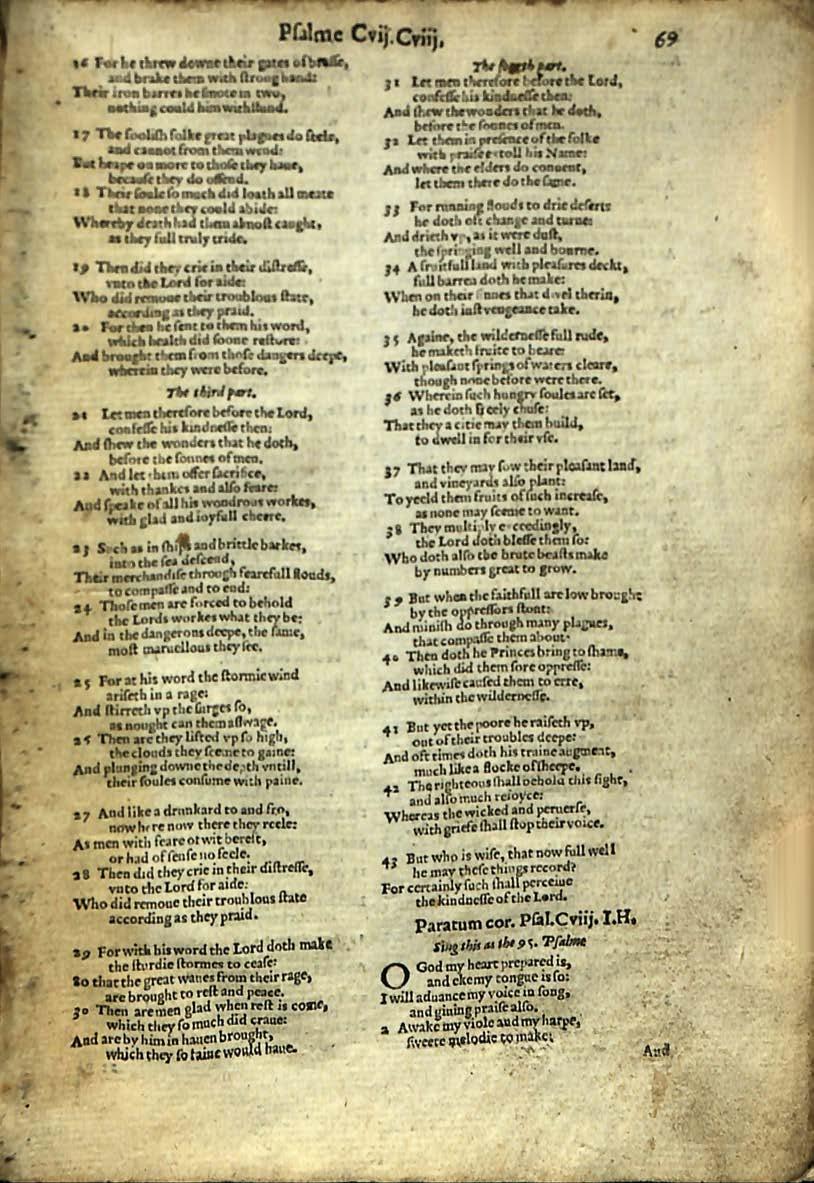 Pſalme Cvij.Cviij.
69
16 For he threw downe their gates of braſſe,
and brake them with ſtrong hand:
Their iron barres he ſmote in two,
nothing could him withſtand.
17 The fooliſh folke great plagues do feele,
and cannot from them wend:
But heape on more to thoſe they haue,
becauſe they do offend.
18 Their ſoule ſo much did loath all meate
that none they could abide:
Whereby death had them almoſt caught,
as they full truly tride.
19 Then did they crie in their diſtreſſe,
vnto the Lord for aide:
Who did remoue their troublous ſtate,
according as they praid.
20 For then he ſent to them his word,
which health did ſoone reſture:
And brought them from thoſe dangers deepe,
wherein they were before.
The third part.
21 Let men therefore before the Lord,
confeſſe his kindneſſe then:
And ſhew the wonders that he doth,
before the ſonnes of men.
22 And let them offer ſacrifice,
with thankes and alſo feare:
And ſpeake of all his wondrous workes,
with glad and ioyfull cheere.
23 Such as in ſhips and brittle barkes,
into the ſea deſcend,
Their merchandiſe through fearefull flouds,
to compaſſe and to end:
24 Thoſe men are forced to behold
the Lords workes what they be:
And in the dangerous deepe, the ſame,
moſt maruellous they ſee.
25 For at his word the ſtormie wind
ariſeth in a rage:
And ſtirreth vp the ſurges ſo,
as nought can them aſſwage.
26 Then are they lifted vp ſo high,
the clouds they ſeeme to gaine:
And plunging downe the depth vntill,
their ſoules conſume with paine.
27 And like a drunkard to and fro,
now here now there they reele:
As men with feare of wit bereft,
or had of ſenſe no feele.
28 Then did they crie in their diſtreſſe,
vnto the Lord for aide:
Who did remoue their troublous ſtate
according as they praid.
29 For with his word the Lord doth make
the ſturdie ſtormes to ceaſe:
So that the great waues from their rage,
are brought to reſt and peace.
30 Then are men glad when reſt is come,
which they ſo much did craue:
And are by him in hauen brought,
which they ſo faine would haue.
The fourth part.
31 Let men therefore before the Lord,
confeſſe his kindneſſe then:
And ſhew the wonders that he doth,
before the ſonnes of men.
32 Let them in preſence of the folke
with praiſe extoll his Name:
And where the elders do conuent,
let them there do the ſame.
33 For running flouds to drie deſerts
he doth oft change and turne:
And drieth vp, as it were duſt,
the ſpringing well and bourne.
34 A fruitfull land with pleaſures deckt,
full barren doth he make:
When on their ſinnes that dwel therin,
he doth iuſt vengeance take.
35 Againe, the wilderneſſe full rude,
he maketh fruite to beare:
With pleaſant ſprings of waters cleare,
though none before were there.
36 Wherein ſuch hungry ſoules are ſet,
as he doth freely chuſe:
That they a citie may them build,
to dwell in for their vſe.
37 That they may ſow their pleaſant land,
and vineyards alſo plant:
To yeeld them fruits of ſuch increaſe,
as none may ſeeme to want.
38 They multiply exceedingly,
the Lord doth bleſſe them ſo:
Who doth alſo the brute beaſts make
by numbers great to grow.
39 But when the faithfull are low brought
by the oppreſſors ſtout:
And miniſh do through many plagues,
that compaſſe them about.
40 Then doth he Princes bring to ſhame,
which did them ſore oppreſſe:
And likewiſe cauſed them to erre,
within the wilderneſſe.
41 But yet the poore he raiſeth vp,
out of their troubles deepe:
And oft times doth his traine augment,
much like a flocke of ſheepe.
42 The righteous ſhall behold this ſight,
and alſo much reioyce:
Whereas the wicked and peruerſe,
with griefe ſhall ſtop their voice.
43 But who is wiſe, that now full well
he may theſe things record?
For certainly ſuch ſhall perceiue
the kindneſſe of the Lord.
Paratum cor. Pſal.Cviij. I.H.
Sing this as the 95. Pſalme
O God my heart prepared is,
and eke my tongue is ſo:
I will aduance my voice in ſong,
and giuing praiſe alſo.
2 Awake my viole and my harpe,
ſweete melodie to make:
And